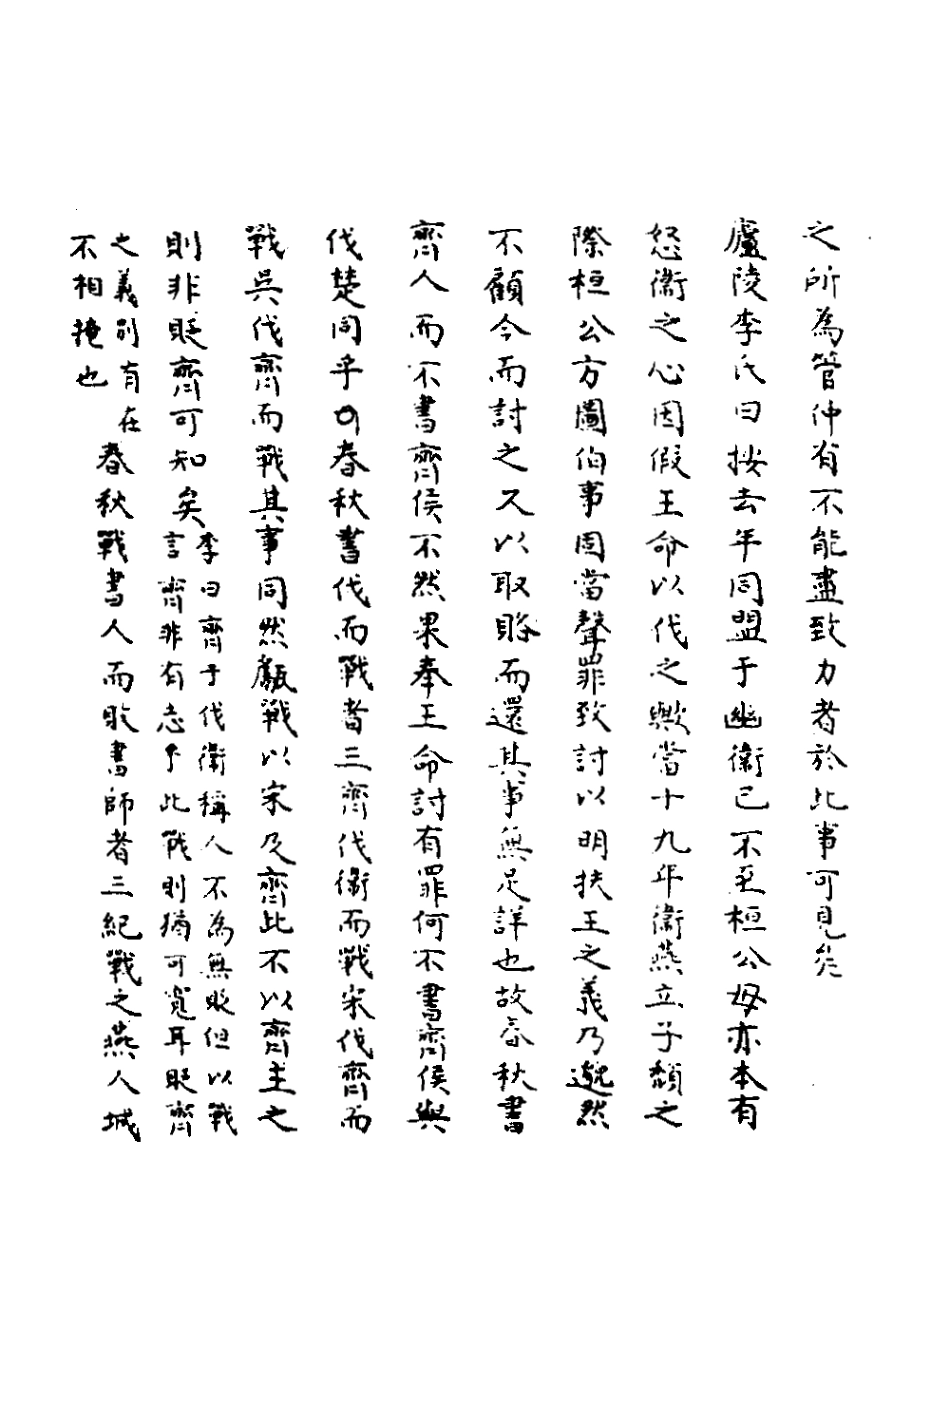 之所為管仲有不能盡致力者於此事可見矣
廬陵李氏曰按去年同盟于幽衛已不至桓公毋亦本有
怒衛之心因假王命以伐之歟當十九年衛燕立子頹之
際桓公方圖伯事固當聲罪致討以明扶王之義乃邈然
不顧今而討之又以取賂而還其事無足詳也故春秋書
齊人而不書齊侯不然果奉王命討有罪何不書齊侯與
伐楚同乎⿰春秋書伐而戰者三齊伐衛而戰宋伐齊而
戰吳伐齊而戰其事同然甗戰以宋及齊此不以齊主之
則非貶齊可知矣
李曰齊于伐衛稱人不為無貶但以戰
言齊非有志乎此戰則猶可寬耳貶齊
之義別有在
不相掩也
春秋戰書人而敗書師者三紀戰之燕人城